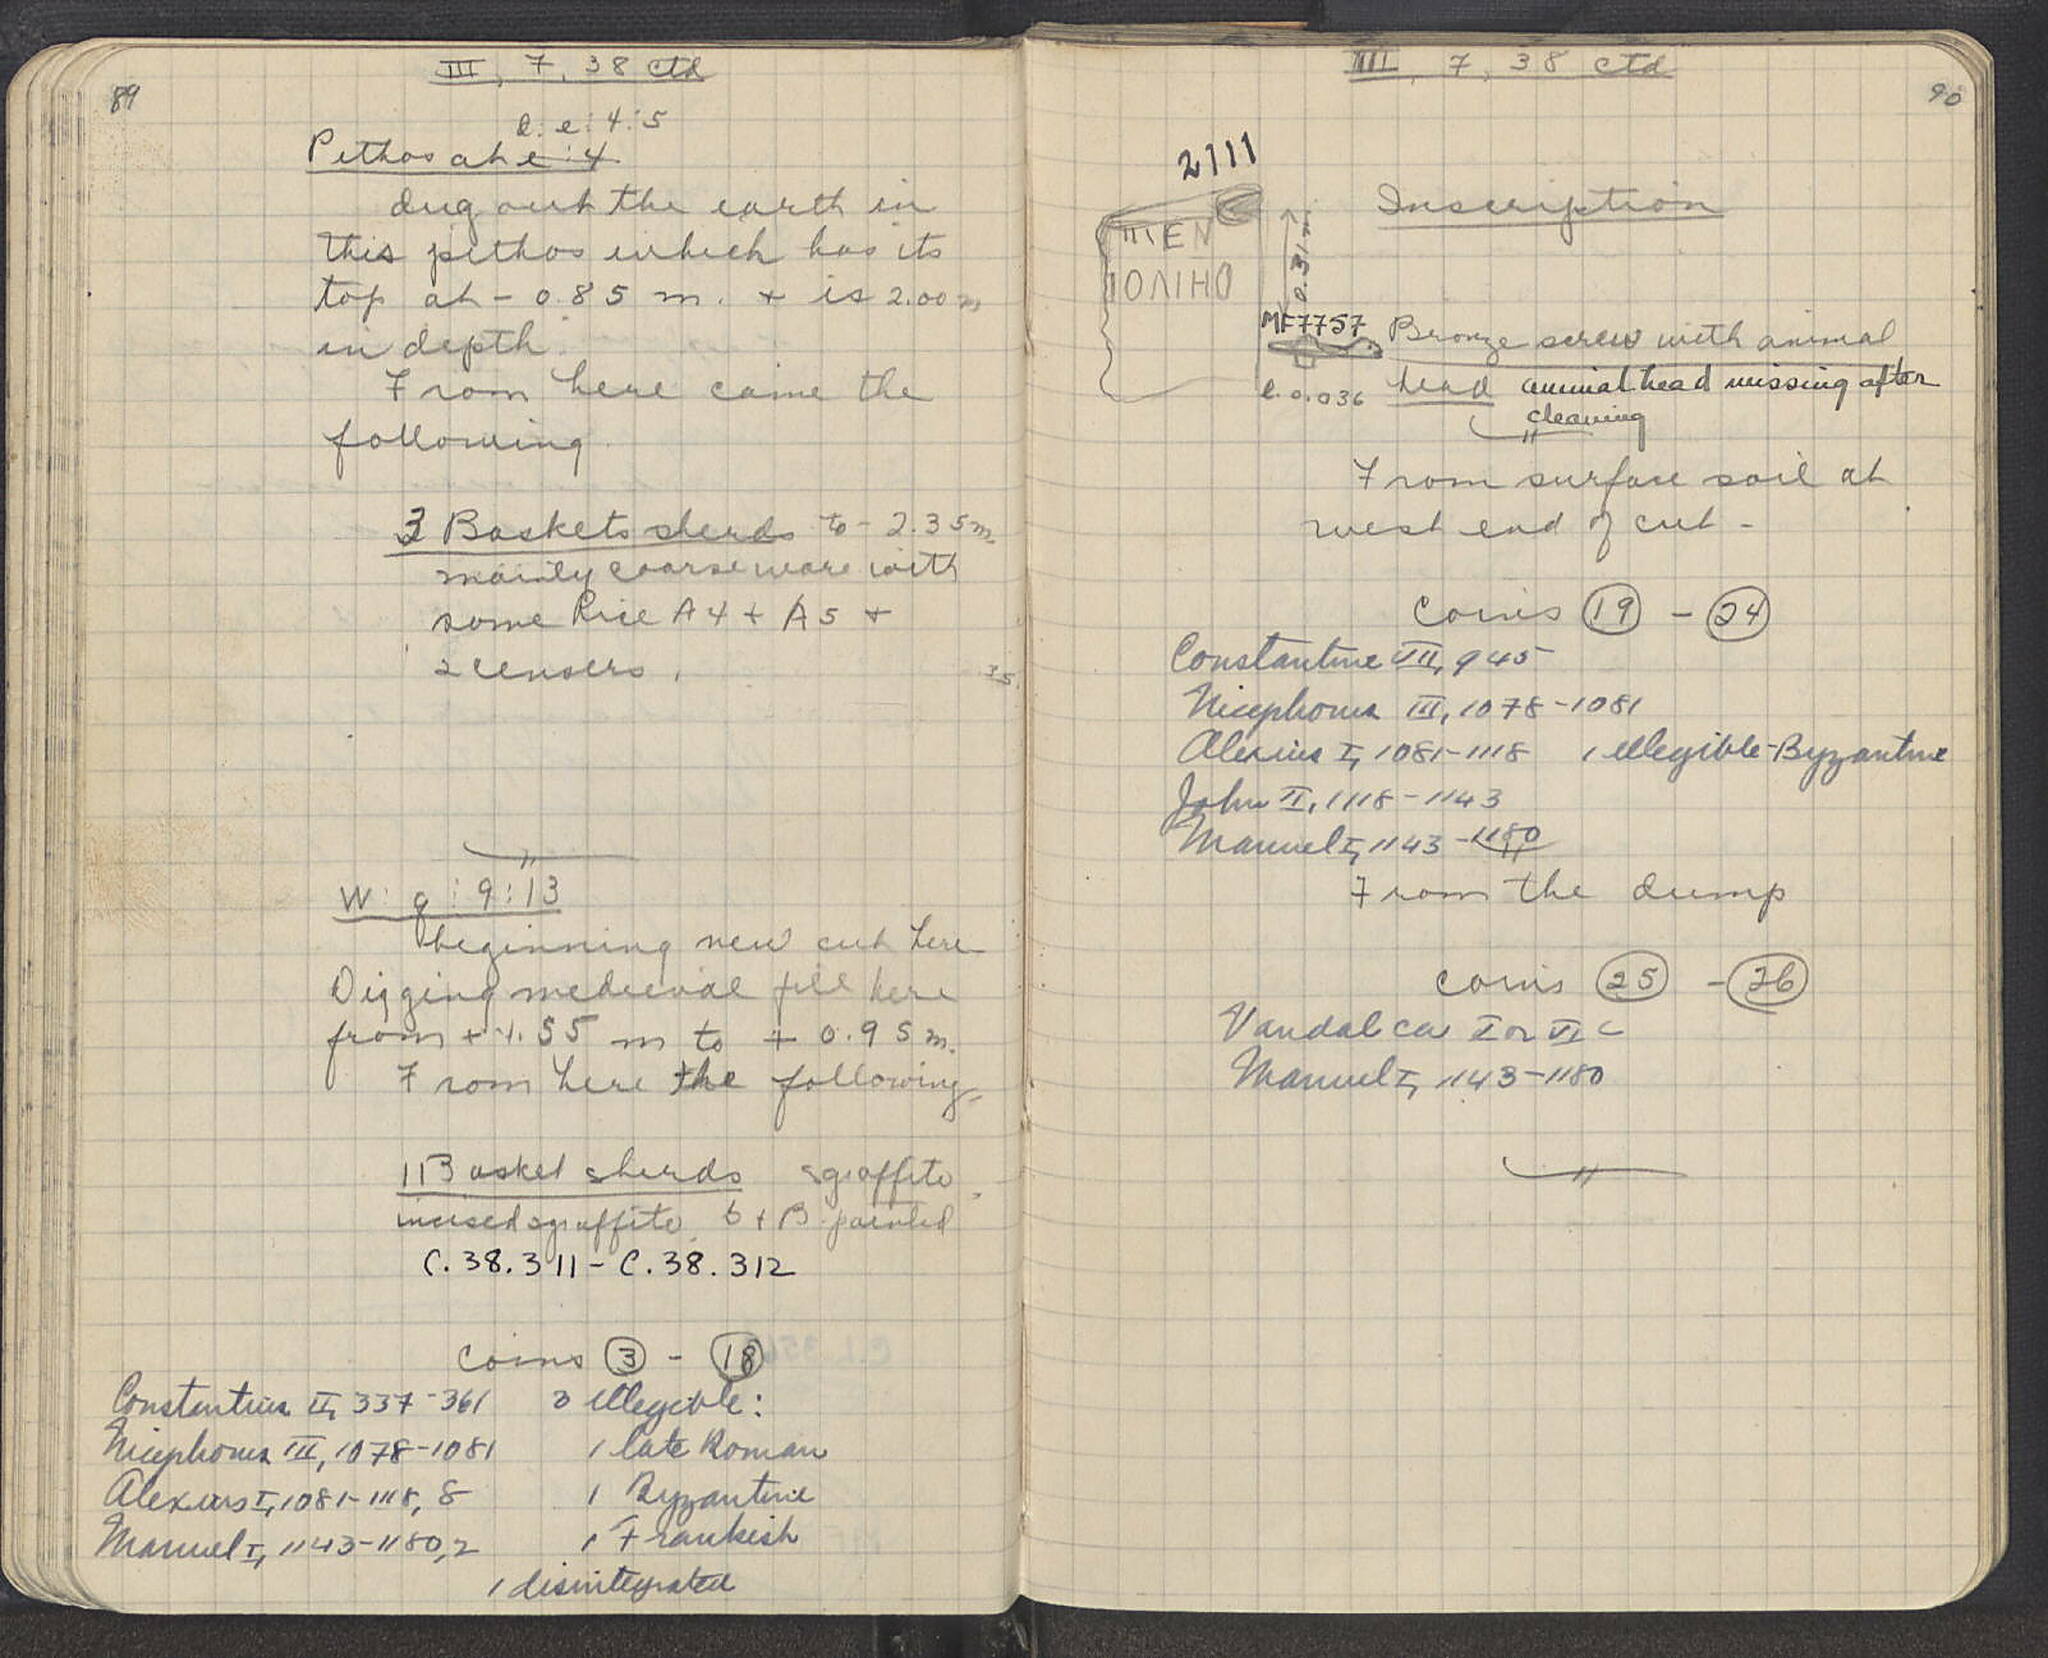 89
III, 7, 38 ctd
d:e:4:5
Pithos at e:4
dug out the earth in
this pithos which has its
top at - 0.85 m. + is 2.00 m
in depth.
From here came the
following.
3 Baskets sherds to - 2.35 m.
mainly coarse ware with
some Rice A4 + A5 +
2 censers.
35.
W: g: 9:13
beginning new cut here
Digging medieval fill here
from + 1.55 m to + 0.95 m.
From here the following
1 Basket sherds sgraffito,
incised sgraffito, G + B painted
C.38.311 - C.38.312
coins 3 - 18
Constantius II, 337-361 3 illegible:
Nicephorus III, 1078-1081 1 late Roman
Alexius I, 1081-1118, 8 1 Byzantine
Manuel I, 1143-1180, 2 1 Frankish
1 disintegrated
III, 7, 38 ctd
90
2111
Inscription
ΠΕΝ
0.31 m.
MF7757
Bronze screw with animal
l. 0.036 head animal head missing after
cleaning
From surface soil at
west end of cut -
coins 19 - 24
Constantine VII, 945
Nicephorus III, 1078-1081
Alexius I, 1081-1118 1 illegible-Byzantine
John II, 1118-1143
Manuel I, 1143-1180
From the dump
coins 25 - 26
Vandal ca V or VI c
Manuel I, 1143-1180